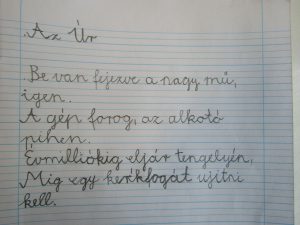 Az Úr
Be van fejezve a nagy mű,
igen.
A gép forog, az alkotó
pihen.
Évmilliókig eljár tengelyén,
Mig egy kerékfogát ujítni
kell.